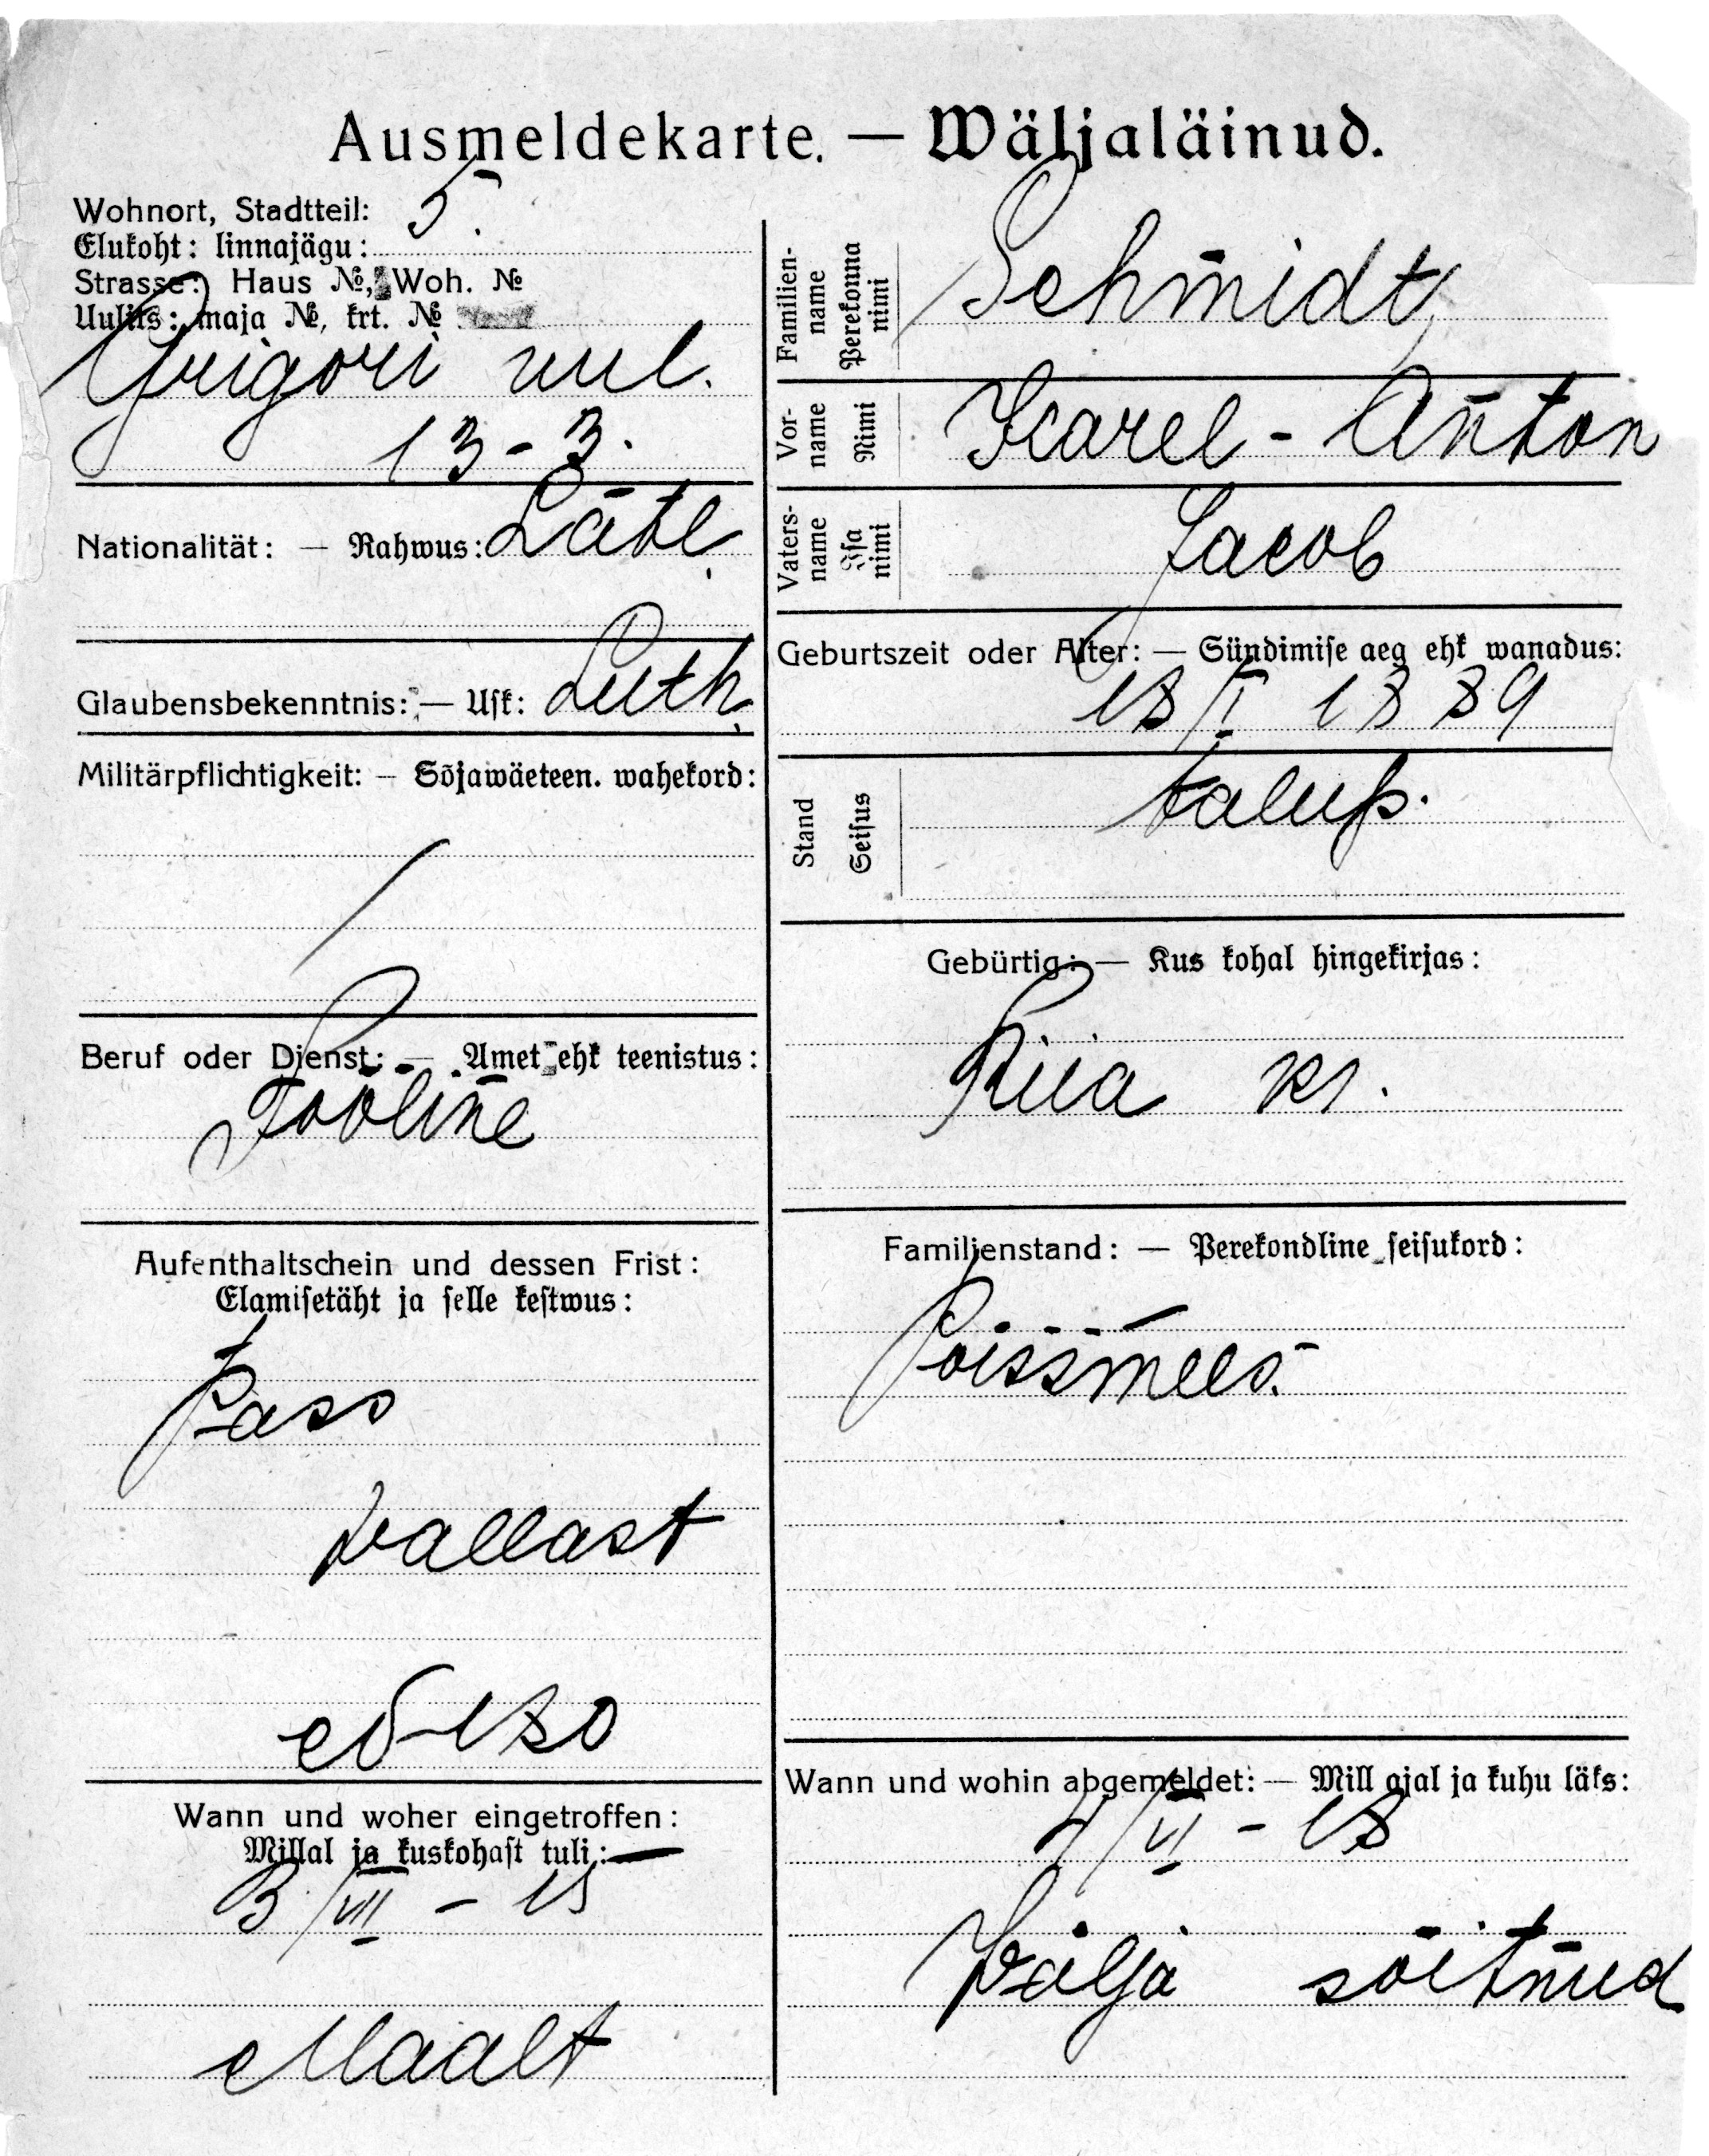 Ausmeldekarte. — Wäljaläinud.
Wohnort, Stadtteil: 5.
Elukoht: linnajägu:
Strasse: Haus №, Woh. №
Uulits: maja №, krt. №
Grigori uul.
13 - 3.
Nationalität: — Rahwus: Lätl.
Glaubensbekenntnis: — Usk: Luth.
Militärpflichtigkeit: — Sõjawäeteen. wahekord:
Beruf oder Dienst: — Amet ehk teenistus:
Tööline
Aufenthaltschein und dessen Frist:
Elamisetäht ja selle kestwus:
Pass
wallast
Wann und woher eingetroffen:
Millal ja kuskohast tuli:
3/VII - 15
Maalt
Familien-name Perekonna nimi
Schmidt
Vor-name Nimi
Karel - Anton
Vaters-name Isa nimi
Jacob
Geburtszeit oder Alter: — Sündimise aeg ehk wanadus:
18/I 1889
Stand Seisus
talup.
Gebürtig: — Kus kohal hingekirjas:
Riia kr.
Familienstand: — Perekondline seisukord:
Poissmees.
Wann und wohin abgemeldet: — Mill ajal ja kuhu läks:
4/VI - 18
Wälja sõitnud